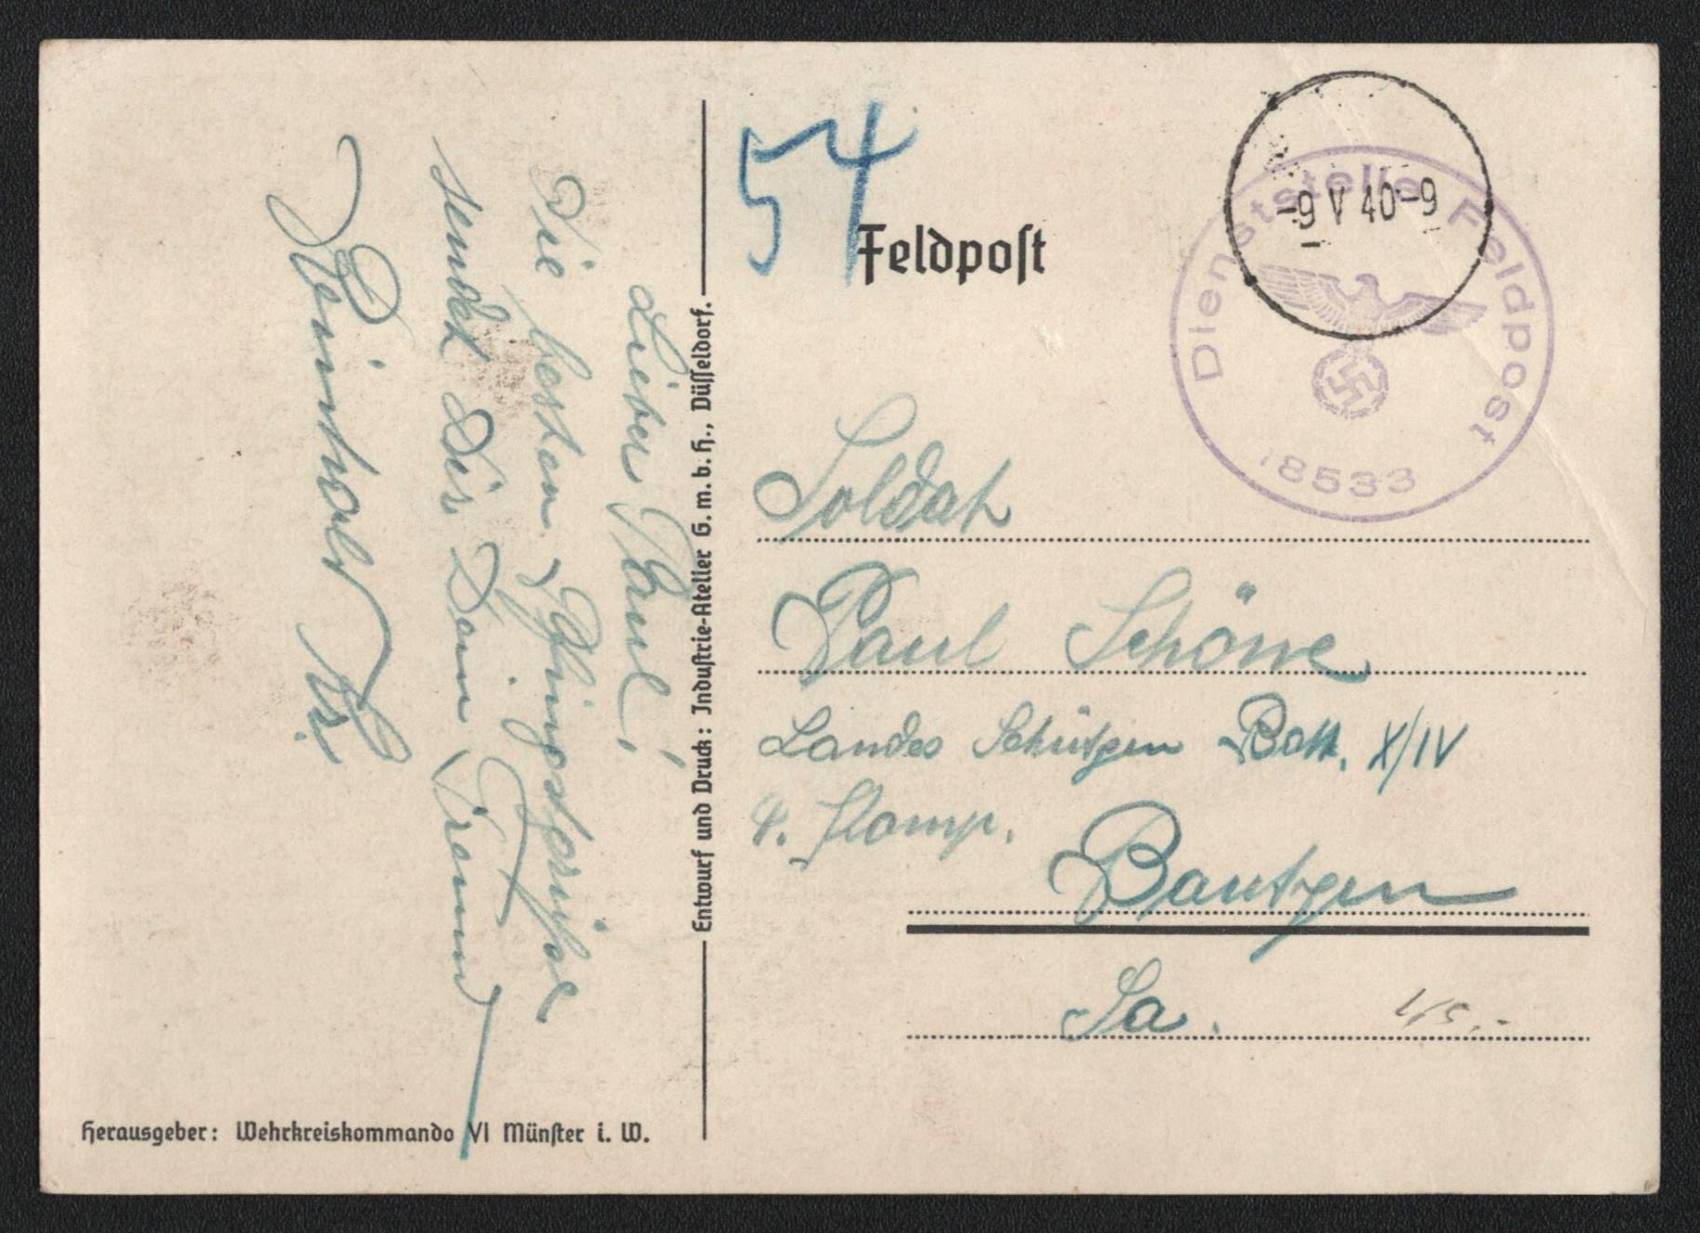 54
Feldpost
-9 V 40-9
Dienststelle Feldpost
18533
Soldat
Paul Schöne
Landes Schützen Batt. X/IV
4. Komp.
Bautzen
Sa.
45.-
Lieber Paul!
Die besten Pfingstgrüße
sendet Dir Dein Freund
Reinhold
Entwurf und Druck: Industrie-Atelier G.m.b.H., Düsseldorf.
Herausgeber: Wehrkreiskommando VI Münster i. W.